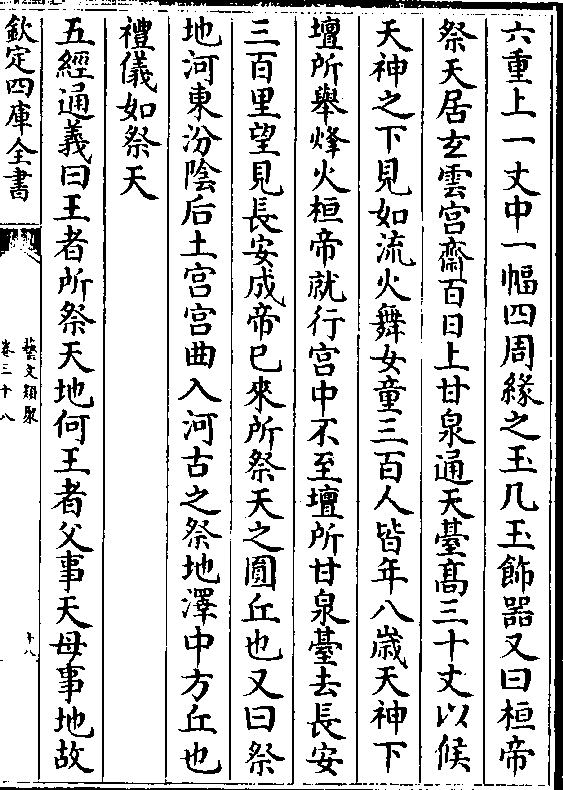 六重上一丈中一幅四周緣之玉几玉飾器又曰桓帝
祭天居玄雲宮齋百日上甘泉通天臺高三十丈以候
天神之下見如流火舞女童三百人皆年八歲天神下
壇所舉烽火桓帝就行宮中不至壇所甘泉臺去長安
三百里望見長安成帝已來所祭天之圓丘也又曰祭
地河東汾陰后土宮宮曲入河古之祭地澤中方丘也
禮儀如祭天
五經通義曰王者所祭天地何王者父事天母事地故
欽定四庫全書
藝文類聚
卷三十八
十八